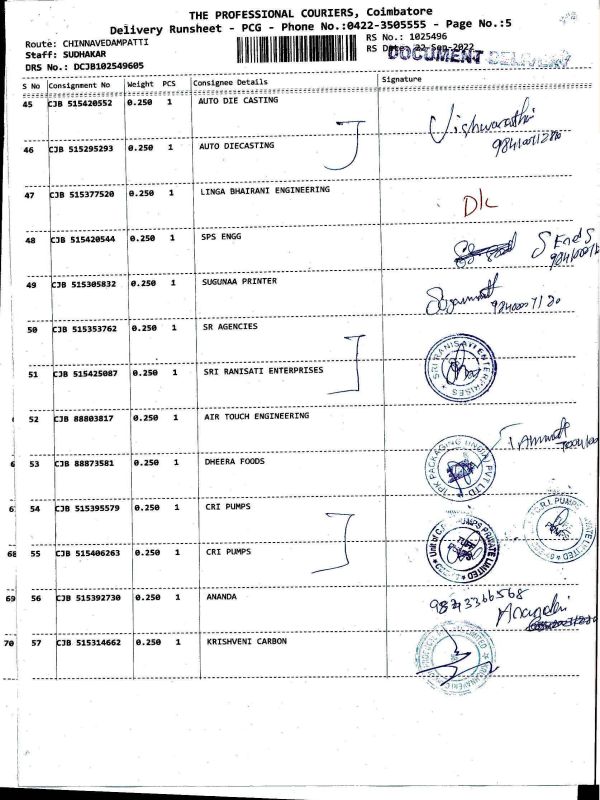 THE PROFESSIONAL COURIERS, Coimbatore
Delivery Runsheet - PCG - Phone No.:0422-3505555 - Page No.:5
Route: CHINNAVEDAMPATTI
RS No.: 1025496
Staff: SUDHAKAR
RS Date: 22-Sep-2022
DOCUMENT DELIVERY
DRS No.: DCJB102549605
S No Consignment No Weight PCS Consignee Details Signature
45 CJB 515420552 0.250 1 AUTO DIE CASTING
46 CJB 515295293 0.250 1 AUTO DIECASTING
47 CJB 515377520 0.250 1 LINGA BHAIRANI ENGINEERING
48 CJB 515420544 0.250 1 SPS ENGG
49 CJB 515305832 0.250 1 SUGUNAA PRINTER
50 CJB 515353762 0.250 1 SR AGENCIES
51 CJB 515425087 0.250 1 SRI RANISATI ENTERPRISES
SRI RANISATI ENTERPRISES
52 CJB 88803817 0.250 1 AIR TOUCH ENGINEERING
53 CJB 88873581 0.250 1 DHEERA FOODS
54 CJB 515395579 0.250 1 CRI PUMPS
68 55 CJB 515406263 0.250 1 CRI PUMPS
69 56 CJB 515392730 0.250 1 ANANDA
9843366568
70 57 CJB 515314662 0.250 1 KRISHVENI CARBON